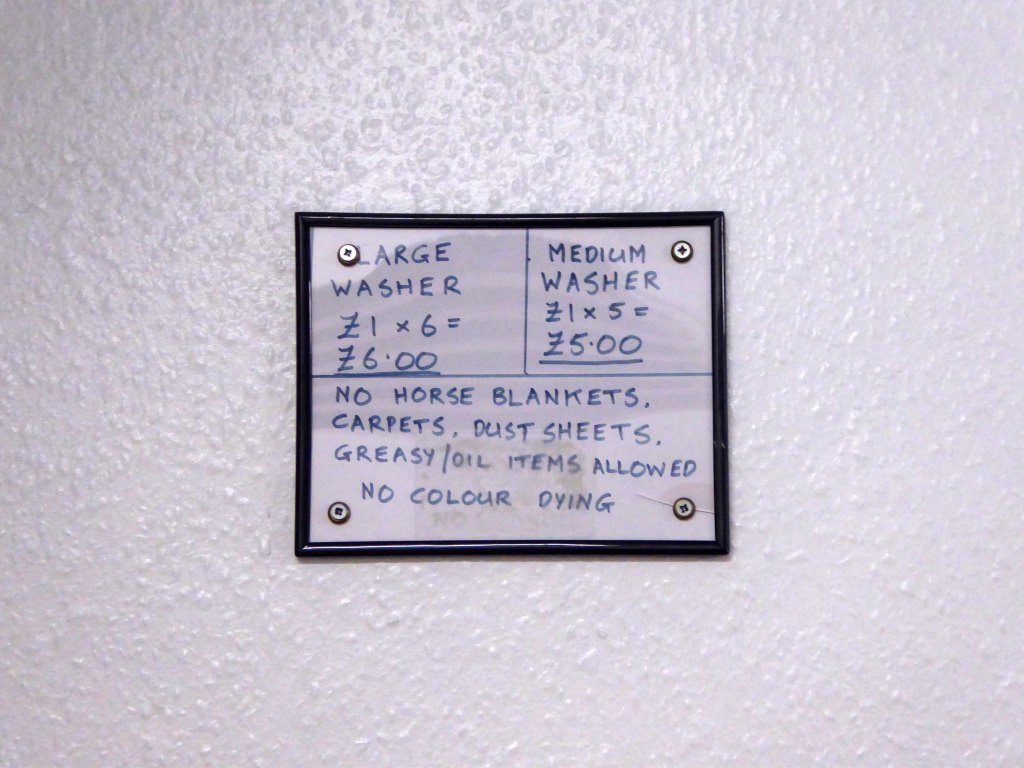 LARGE
WASHER
£1 x 6 =
£6.00
MEDIUM
WASHER
£1 x 5 =
£5.00
NO HORSE BLANKETS,
CARPETS, DUST SHEETS,
GREASY/OIL ITEMS ALLOWED
NO COLOUR DYING